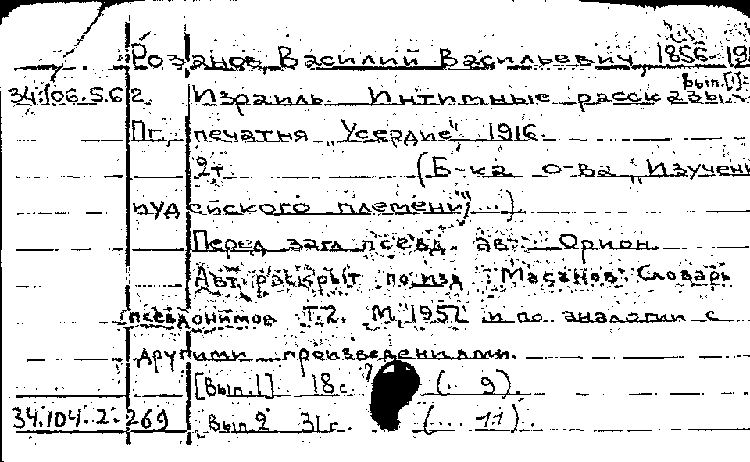 Розанов, Василий Васильевич, 1856-19
Вып.[1]-
34.106.5.62. Израиль. Интимные рассказы.
Пг., печатня "Усердие", 1916.
2т. (Б-ка о-ва "Изучени
иудейского племени"...)
Перед загл. псевд. авт.: Орион.
Авт. раскрыт по изд.: Масанов. Словарь
псевдонимов Т.2. М, 1957 и по аналогии с
другими произведениями.
[Вып.1] 18с. (.. 9).
34.104.2.269 Вып.2 31с. (... 11).